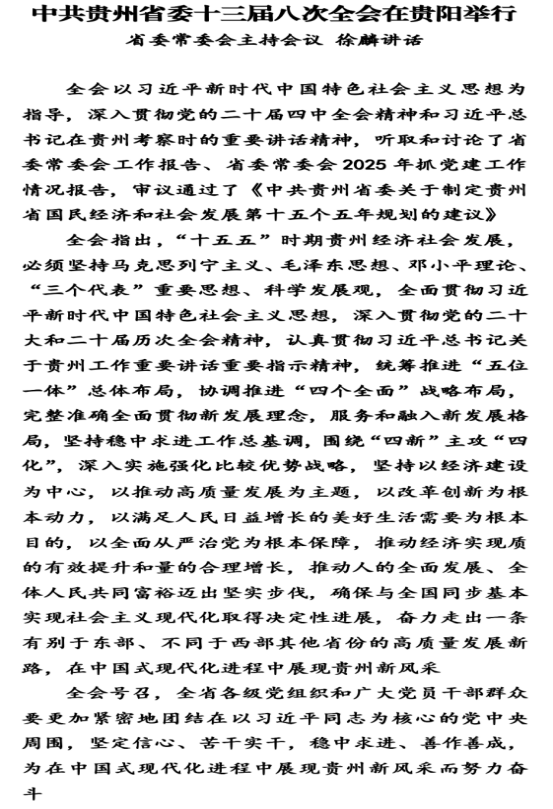 中共贵州省委十三届八次全会在贵阳举行
省委常委会主持会议 徐麟讲话
全会以习近平新时代中国特色社会主义思想为
指导，深入贯彻党的二十届四中全会精神和习近平总
书记在贵州考察时的重要讲话精神，听取和讨论了省
委常委会工作报告、省委常委会2025年抓党建工作
情况报告，审议通过了《中共贵州省委关于制定贵州
省国民经济和社会发展第十五个五年规划的建议》
全会指出，“十五五”时期贵州经济社会发展，
必须坚持马克思列宁主义、毛泽东思想、邓小平理论、
“三个代表”重要思想、科学发展观，全面贯彻习近
平新时代中国特色社会主义思想，深入贯彻党的二十
大和二十届历次全会精神，认真贯彻习近平总书记关
于贵州工作重要讲话重要指示精神，统筹推进“五位
一体”总体布局，协调推进“四个全面”战略布局，
完整准确全面贯彻新发展理念，服务和融入新发展格
局，坚持稳中求进工作总基调，围绕“四新”主攻“四
化”，深入实施强化比较优势战略，坚持以经济建设
为中心，以推动高质量发展为主题，以改革创新为根
本动力，以满足人民日益增长的美好生活需要为根本
目的，以全面从严治党为根本保障，推动经济实现质
的有效提升和量的合理增长，推动人的全面发展、全
体人民共同富裕迈出坚实步伐，确保与全国同步基本
实现社会主义现代化取得决定性进展，奋力走出一条
有别于东部、不同于西部其他省份的高质量发展新
路，在中国式现代化进程中展现贵州新风采
全会号召，全省各级党组织和广大党员干部群众
要更加紧密地团结在以习近平同志为核心的党中央
周围，坚定信心、苦干实干，稳中求进、善作善成，
为在中国式现代化进程中展现贵州新风采而努力奋
斗